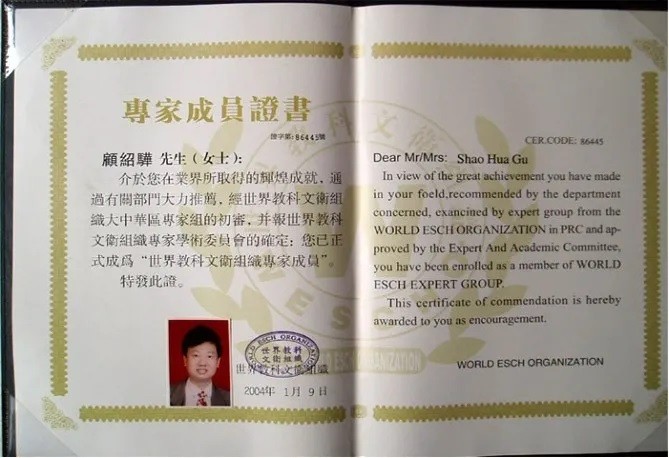 專家成員證書
證字第: 86445號
顧紹驊 先生(女士):
介於您在業界所取得的輝煌成就，通
過有關部門大力推薦，經世界教科文衛組
織大中華區專家組的初審，并報世界教科
文衛組織專家學術委員會的確定：您已正
式成爲“世界教科文衛組織專家成員”。
特發此證。
世界教科
文衛組織
WORLD ESCH ORGANIZATION
世界教科文衛組織
2004年 1月 9日
CER.CODE: 86445
Dear Mr/Mrs: Shao Hua Gu
In view of the great achievement you have made
in your foeld,recommended by the department
concerned, exancined by expert group from the
WORLD ESCH ORGANIZATION in PRC and ap-
proved by the Expert And Academic Committee,
you have been enrolled as a member of WORLD
ESCH EXPERT GROUP.
This certificate of commendation is hereby
awarded to you as encouragement.
WORLD ESCH ORGANIZATION